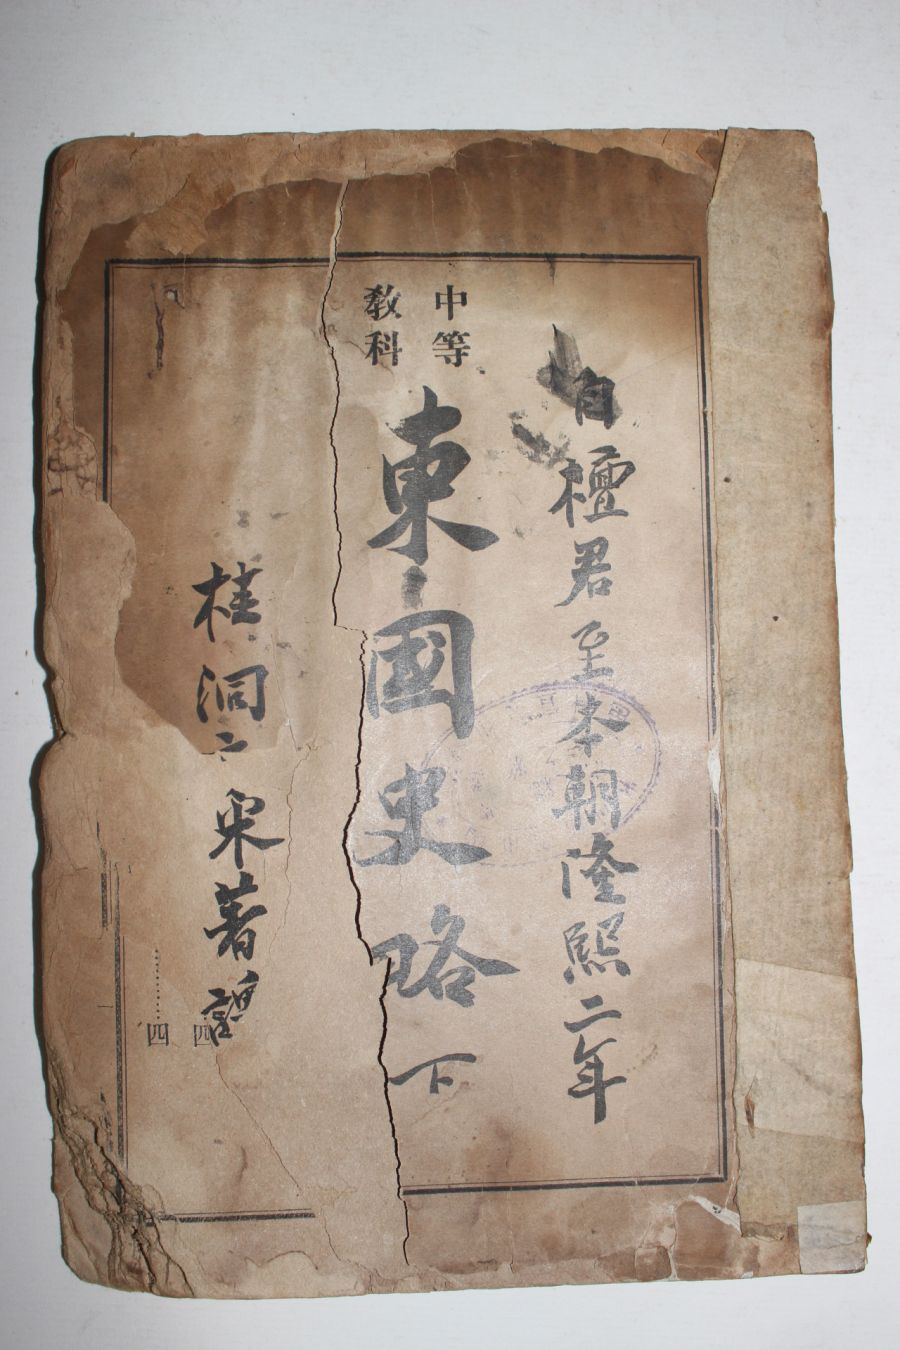 自檀君至本朝隆熙二年
中等
敎科
東國史略 下
桂洞 宋著
四
四